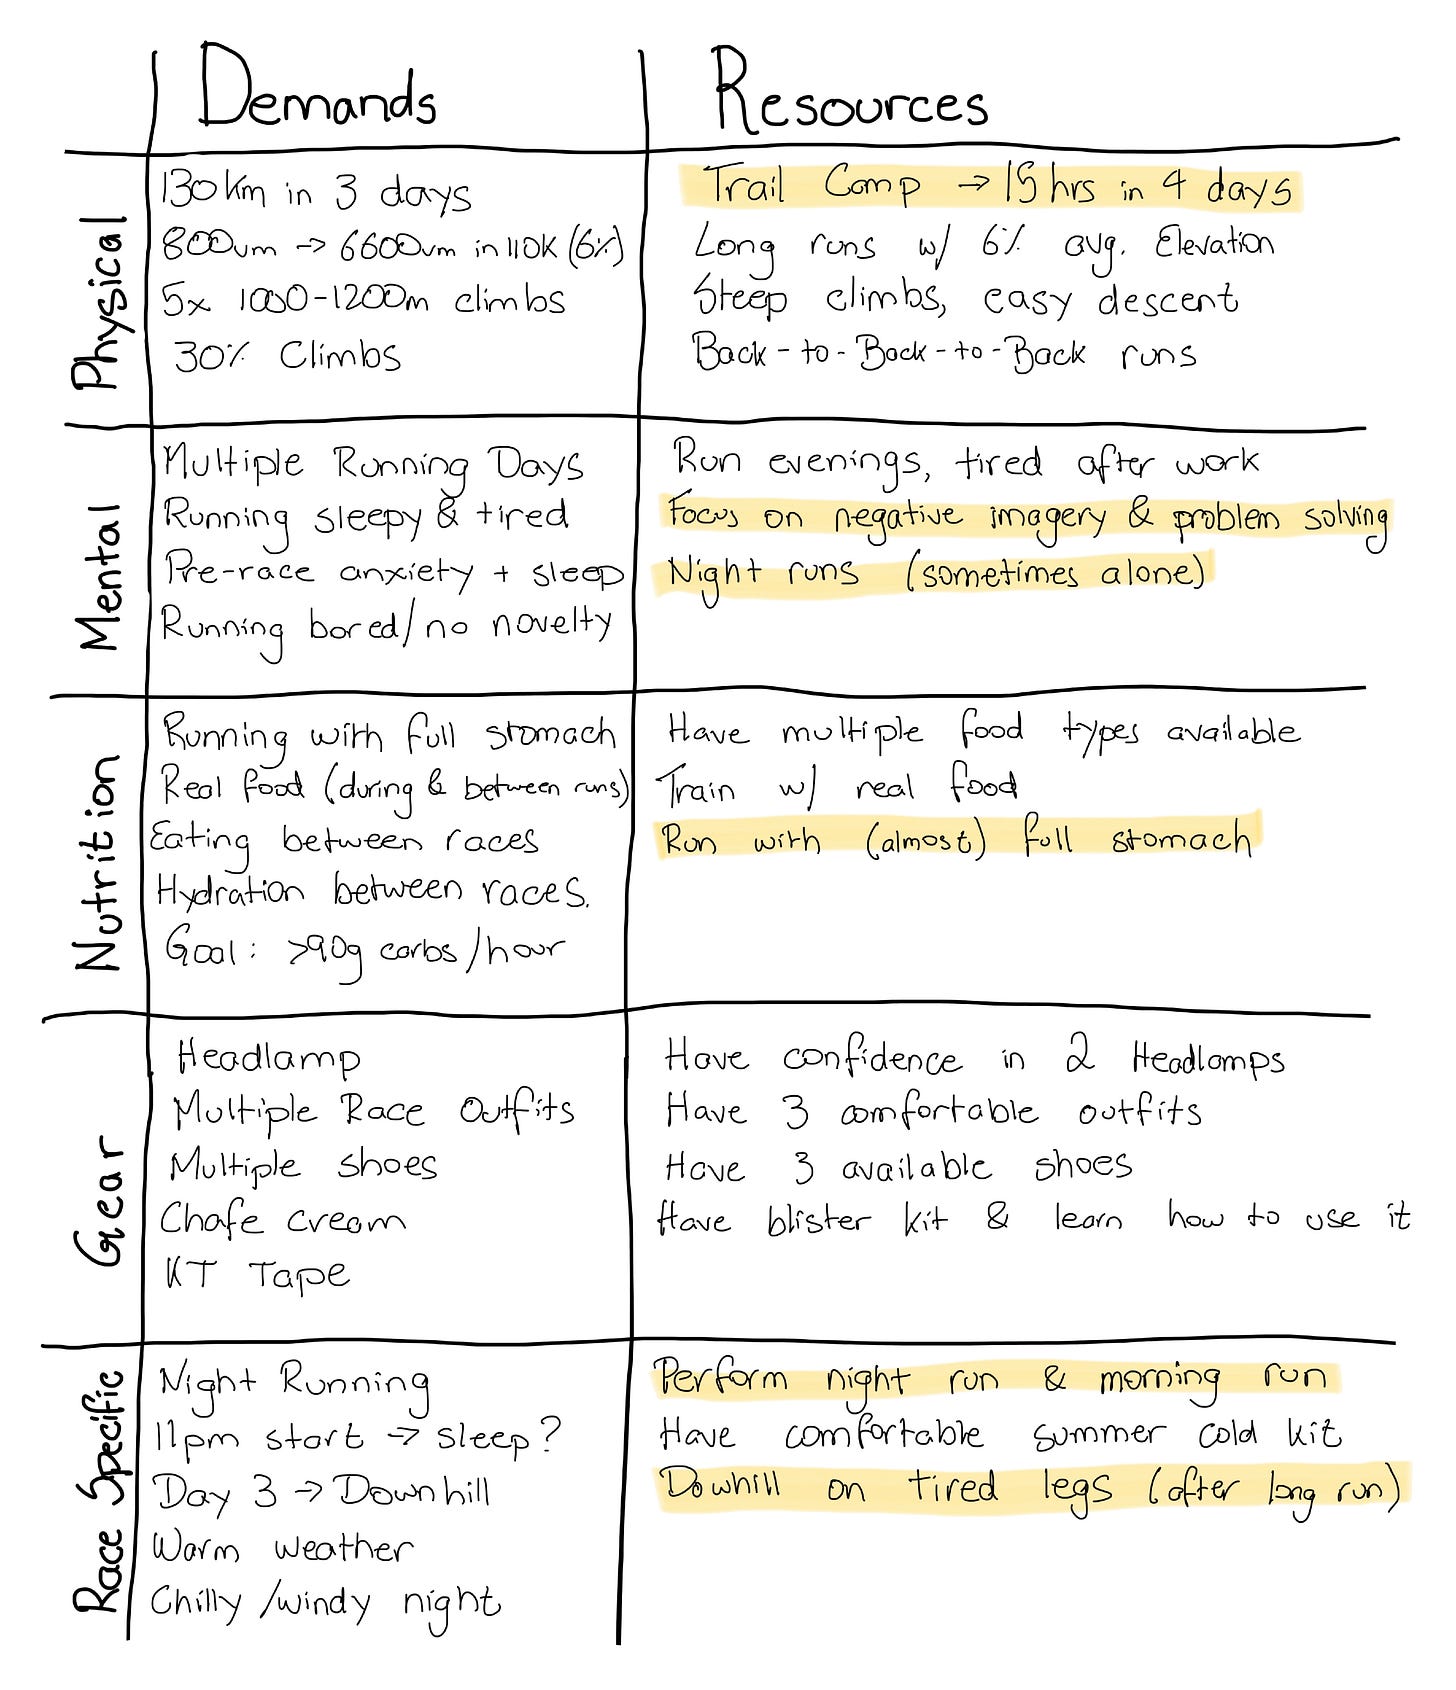 Demands
Resources
Physical
130km in 3 days
800vm → 6600vm in 110K (6%)
5x 1000-1200m climbs
30% Climbs
Trail Camp → 15hrs in 4 days
Long runs w/ 6% avg. Elevation
Steep climbs, easy descent
Back-to-Back-to-Back runs
Mental
Multiple Running Days
Running sleepy & tired
Pre-race anxiety + sleep
Running bored/no novelty
Run evenings, tired after work
Focus on negative imagery & problem solving
Night runs (sometimes alone)
Nutrition
Running with full stomach
Real food (during & between runs)
Eating between races
Hydration between races.
Goal: >90g carbs/hour
Have multiple food types available
Train w/ real food
Run with (almost) full stomach
Gear
Headlamp
Multiple Race Outfits
Multiple shoes
Chafe cream
KT Tape
Have confidence in 2 Headlamps
Have 3 comfortable outfits
Have 3 available shoes
Have blister kit & learn how to use it
Race Specific
Night Running
11pm start → sleep?
Day 3 → Downhill
Warm weather
Chilly/windy night
Perform night run & morning run
Have comfortable summer cold kit
Dowhill on tired legs (after long run)